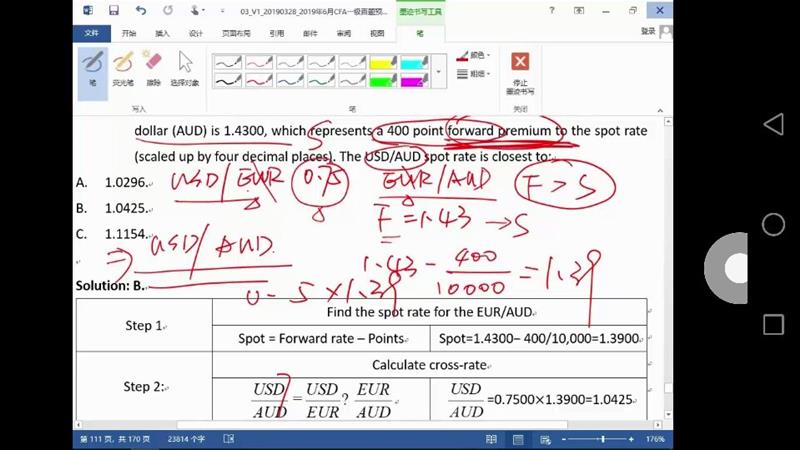 03_V1_20190328_2019年6月CFA一级百题预...
墨迹书写工具
文件 开始 插入 设计 页面布局 引用 邮件 审阅 视图 笔 登录
笔 荧光笔 橡皮擦 选择对象
颜色
粗细
停止墨迹书写
写入 笔 关闭
dollar (AUD) is 1.4300, which represents a 400 point forward premium to the spot rate
(scaled up by four decimal places). The USD/AUD spot rate is closest to:
S
A. 1.0296.
USD/EUR 0.75 EUR/AUD F>S
B. 1.0425.
F=1.43 → S
C. 1.1154.
⇒ USD/AUD
1.43 - 400/10000 = 1.39
× 1.39
Solution: B.
Step 1
Find the spot rate for the EUR/AUD.
Spot = Forward rate – Points
Spot=1.4300– 400/10,000=1.3900
Step 2:
Calculate cross-rate
USD/AUD = USD/EUR ? EUR/AUD
USD/AUD =0.7500×1.3900=1.0425
第 111 页，共 170 页 23814 个字 176%